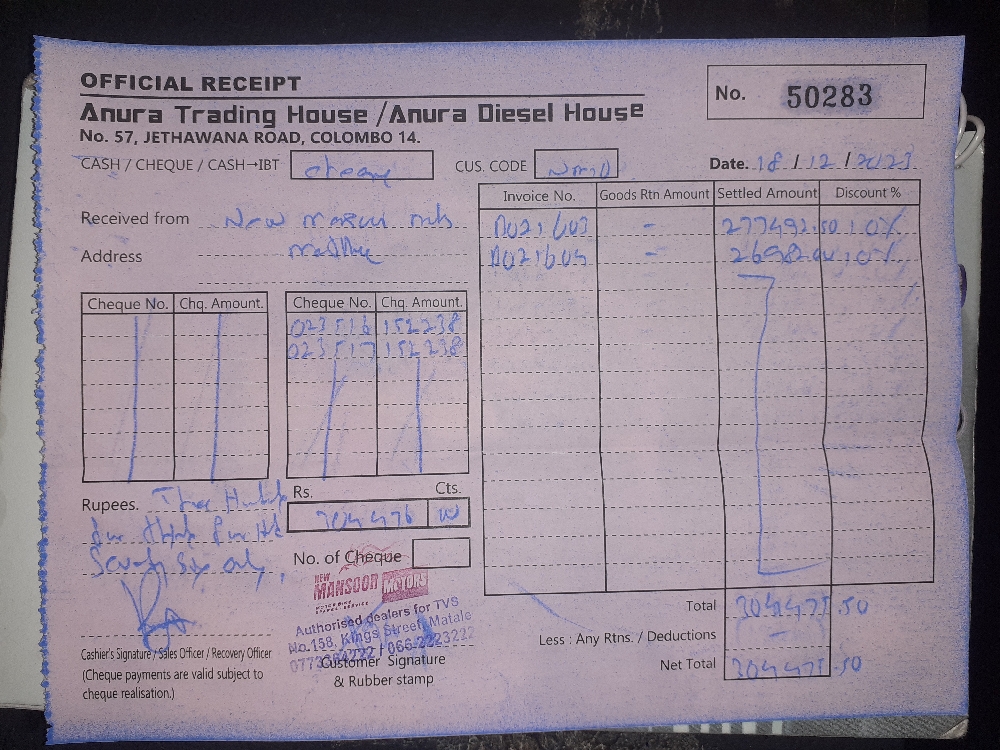 OFFICIAL RECEIPT
Anura Trading House / Anura Diesel House
No. 57, JETHAWANA ROAD, COLOMBO 14.
No. 50283
CASH / CHEQUE / CASH→IBT cheque
CUS. CODE
Date. 18 / 12 / 2023
Received from New
Address
Invoice No. Goods Rtn Amount Settled Amount Discount %
A021603 - 277492.50 10%
A021604 - 10%
Cheque No. Chq. Amount. Cheque No. Chq. Amount.
023516 152238
023517 152238
Rupees. Three
Four
Seventy Six only.
Rs. Cts.
304476 00
No. of Cheque
NEW
MANSOOR MOTORS
Authorised dealers for TVS
No.158, Kings Street, Matale
/ 066-2223222
Customer Signature
& Rubber stamp
Cashier's Signature / Sales Officer / Recovery Officer
(Cheque payments are valid subject to
cheque realisation.)
Total 304475.50
Less : Any Rtns. / Deductions -
Net Total 304475.50